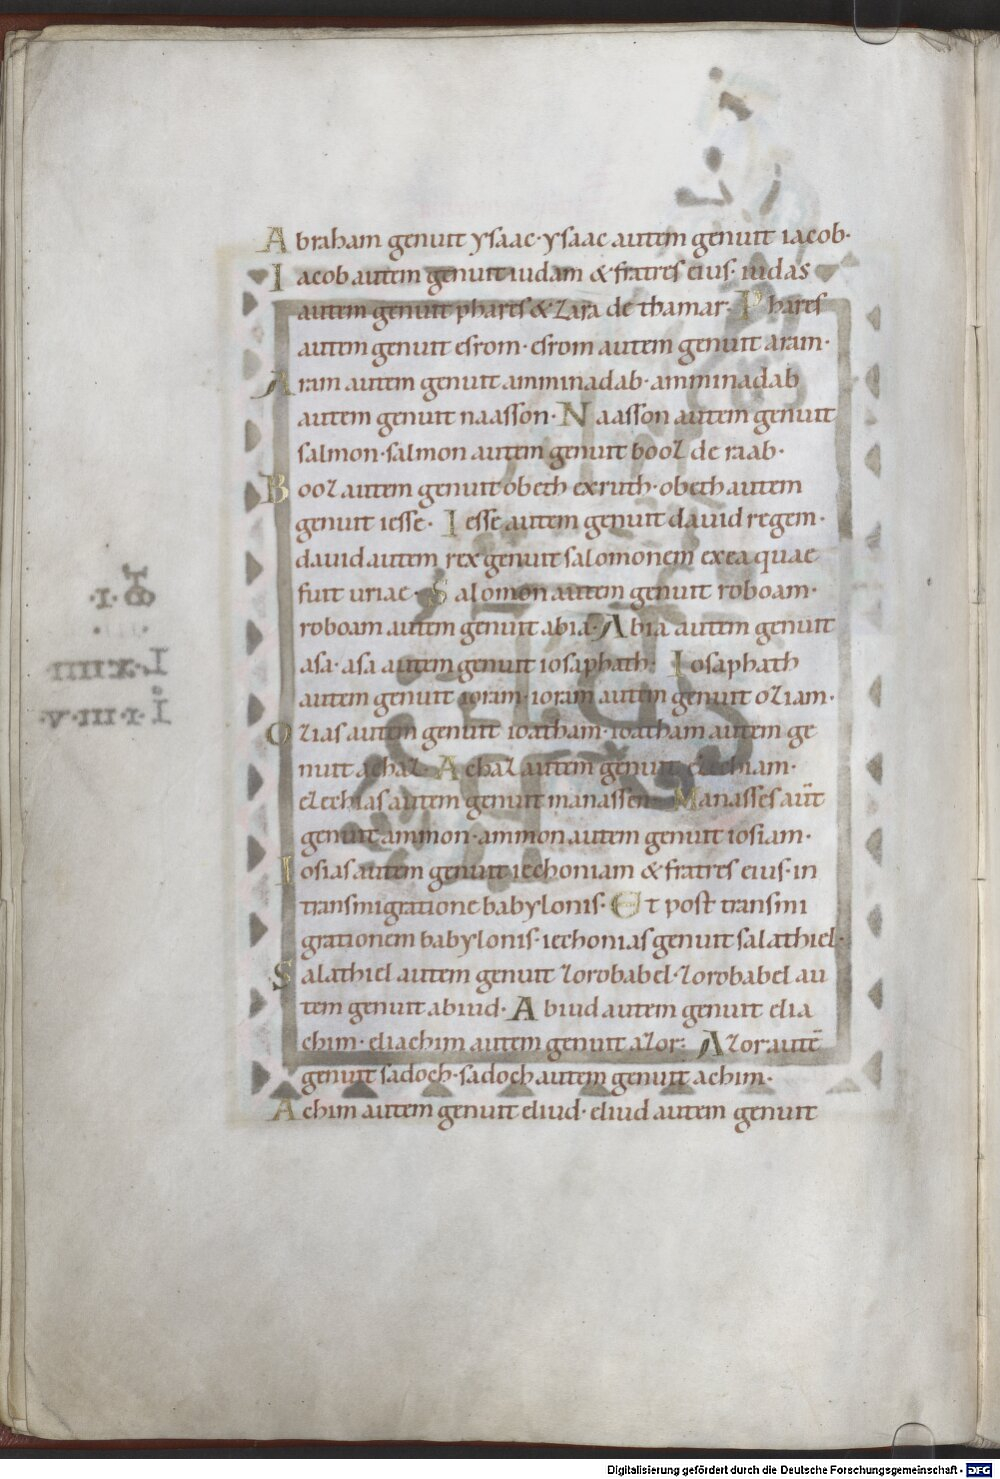 Abraham genuit ysaac· ysaac autem genuit iacob·
Iacob autem genuit iudam & fratres eius· iudas
autem genuit phares & zara de thamar· Phares
autem genuit esrom· esrom autem genuit aram·
Aram autem genuit amminadab· amminadab
autem genuit naasson· Naasson autem genuit
salmon· salmon autem genuit booz de raab·
Booz autem genuit obeth ex ruth· obeth autem
genuit iesse· Iesse autem genuit dauid regem·
dauid autem rex genuit salomonem ex ea quae
fuit uriae· Salomon autem genuit roboam·
roboam autem genuit abia· Abia autem genuit
asa· asa autem genuit iosaphath· Iosaphath
autem genuit ioram· ioram autem genuit oziam·
Ozias autem genuit ioatham· ioatham autem ge
nuit achaz· Achaz autem genuit ezechiam·
ezechias autem genuit manassen· Manasses aut̄
genuit ammon· ammon autem genuit iosiam·
Iosias autem genuit iechoniam & fratres eius· in
transmigratione babylonis· Et post transmi
grationem babylonis· iechonias genuit salathiel·
Salathiel autem genuit zorobabel· zorobabel au
tem genuit abiud· Abiud autem genuit elia
chim· eliachim autem genuit azor· Azor autē
genuit sadoch· sadoch autem genuit achim·
Achim autem genuit eliud· eliud autem genuit
Digitalisierung gefördert durch die Deutsche Forschungsgemeinschaft - DFG